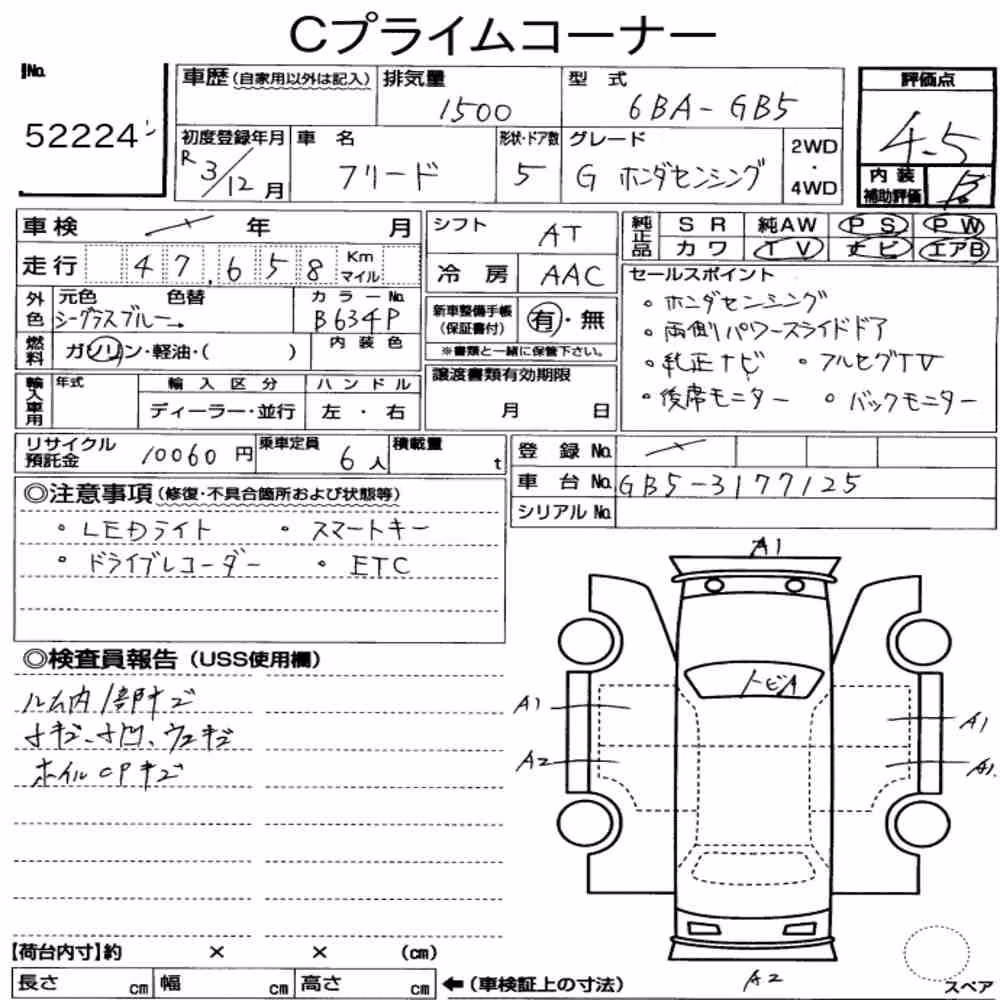 Cプライムコーナー
No.
52224
車歴(自家用以外は記入)
排気量
1500
型式
6BA-GB5
評価点
4.5
初度登録年月
R3/12月
車名
フリード
形状・ドア数
5
グレード
G ホンダセンシング
2WD
・
4WD
内装
補助評価
B
車検 年 月
シフト
AT
純正品
SR 純AW PS PW
カワ TV ナビ エアB
走行 47,658 Km マイル
冷房 AAC
セールスポイント
・ホンダセンシング
・両側パワースライドドア
・純正ナビ ・フルセグTV
・後席モニター ・バックモニター
外色
元色 色替
シーグラスブルー→
カラーNo.
B634P
新車整備手帳
(保証書付)
有・無
※書類と一緒に保管下さい。
燃料
ガソリン・軽油・( )
内装色
輸入車用
年式
輸入区分
ディーラー・並行
ハンドル
左・右
譲渡書類有効期限
月 日
リサイクル
預託金
10060円
乗車定員
6人
積載量
t
登録No.
車台No. GB5-3177125
シリアルNo.
◎注意事項(修復・不具合箇所および状態等)
・LEDライト ・スマートキー
・ドライブレコーダー ・ETC
◎検査員報告(USS使用欄)
ルーム内1部キズ
小キズ、小凹、ウスキズ
ホイルCPキズ
A1
トビA
A1
A1
A2
A1
A2
スペア
【荷台内寸】約 × × (cm)
長さ cm 幅 cm 高さ cm ←(車検証上の寸法)